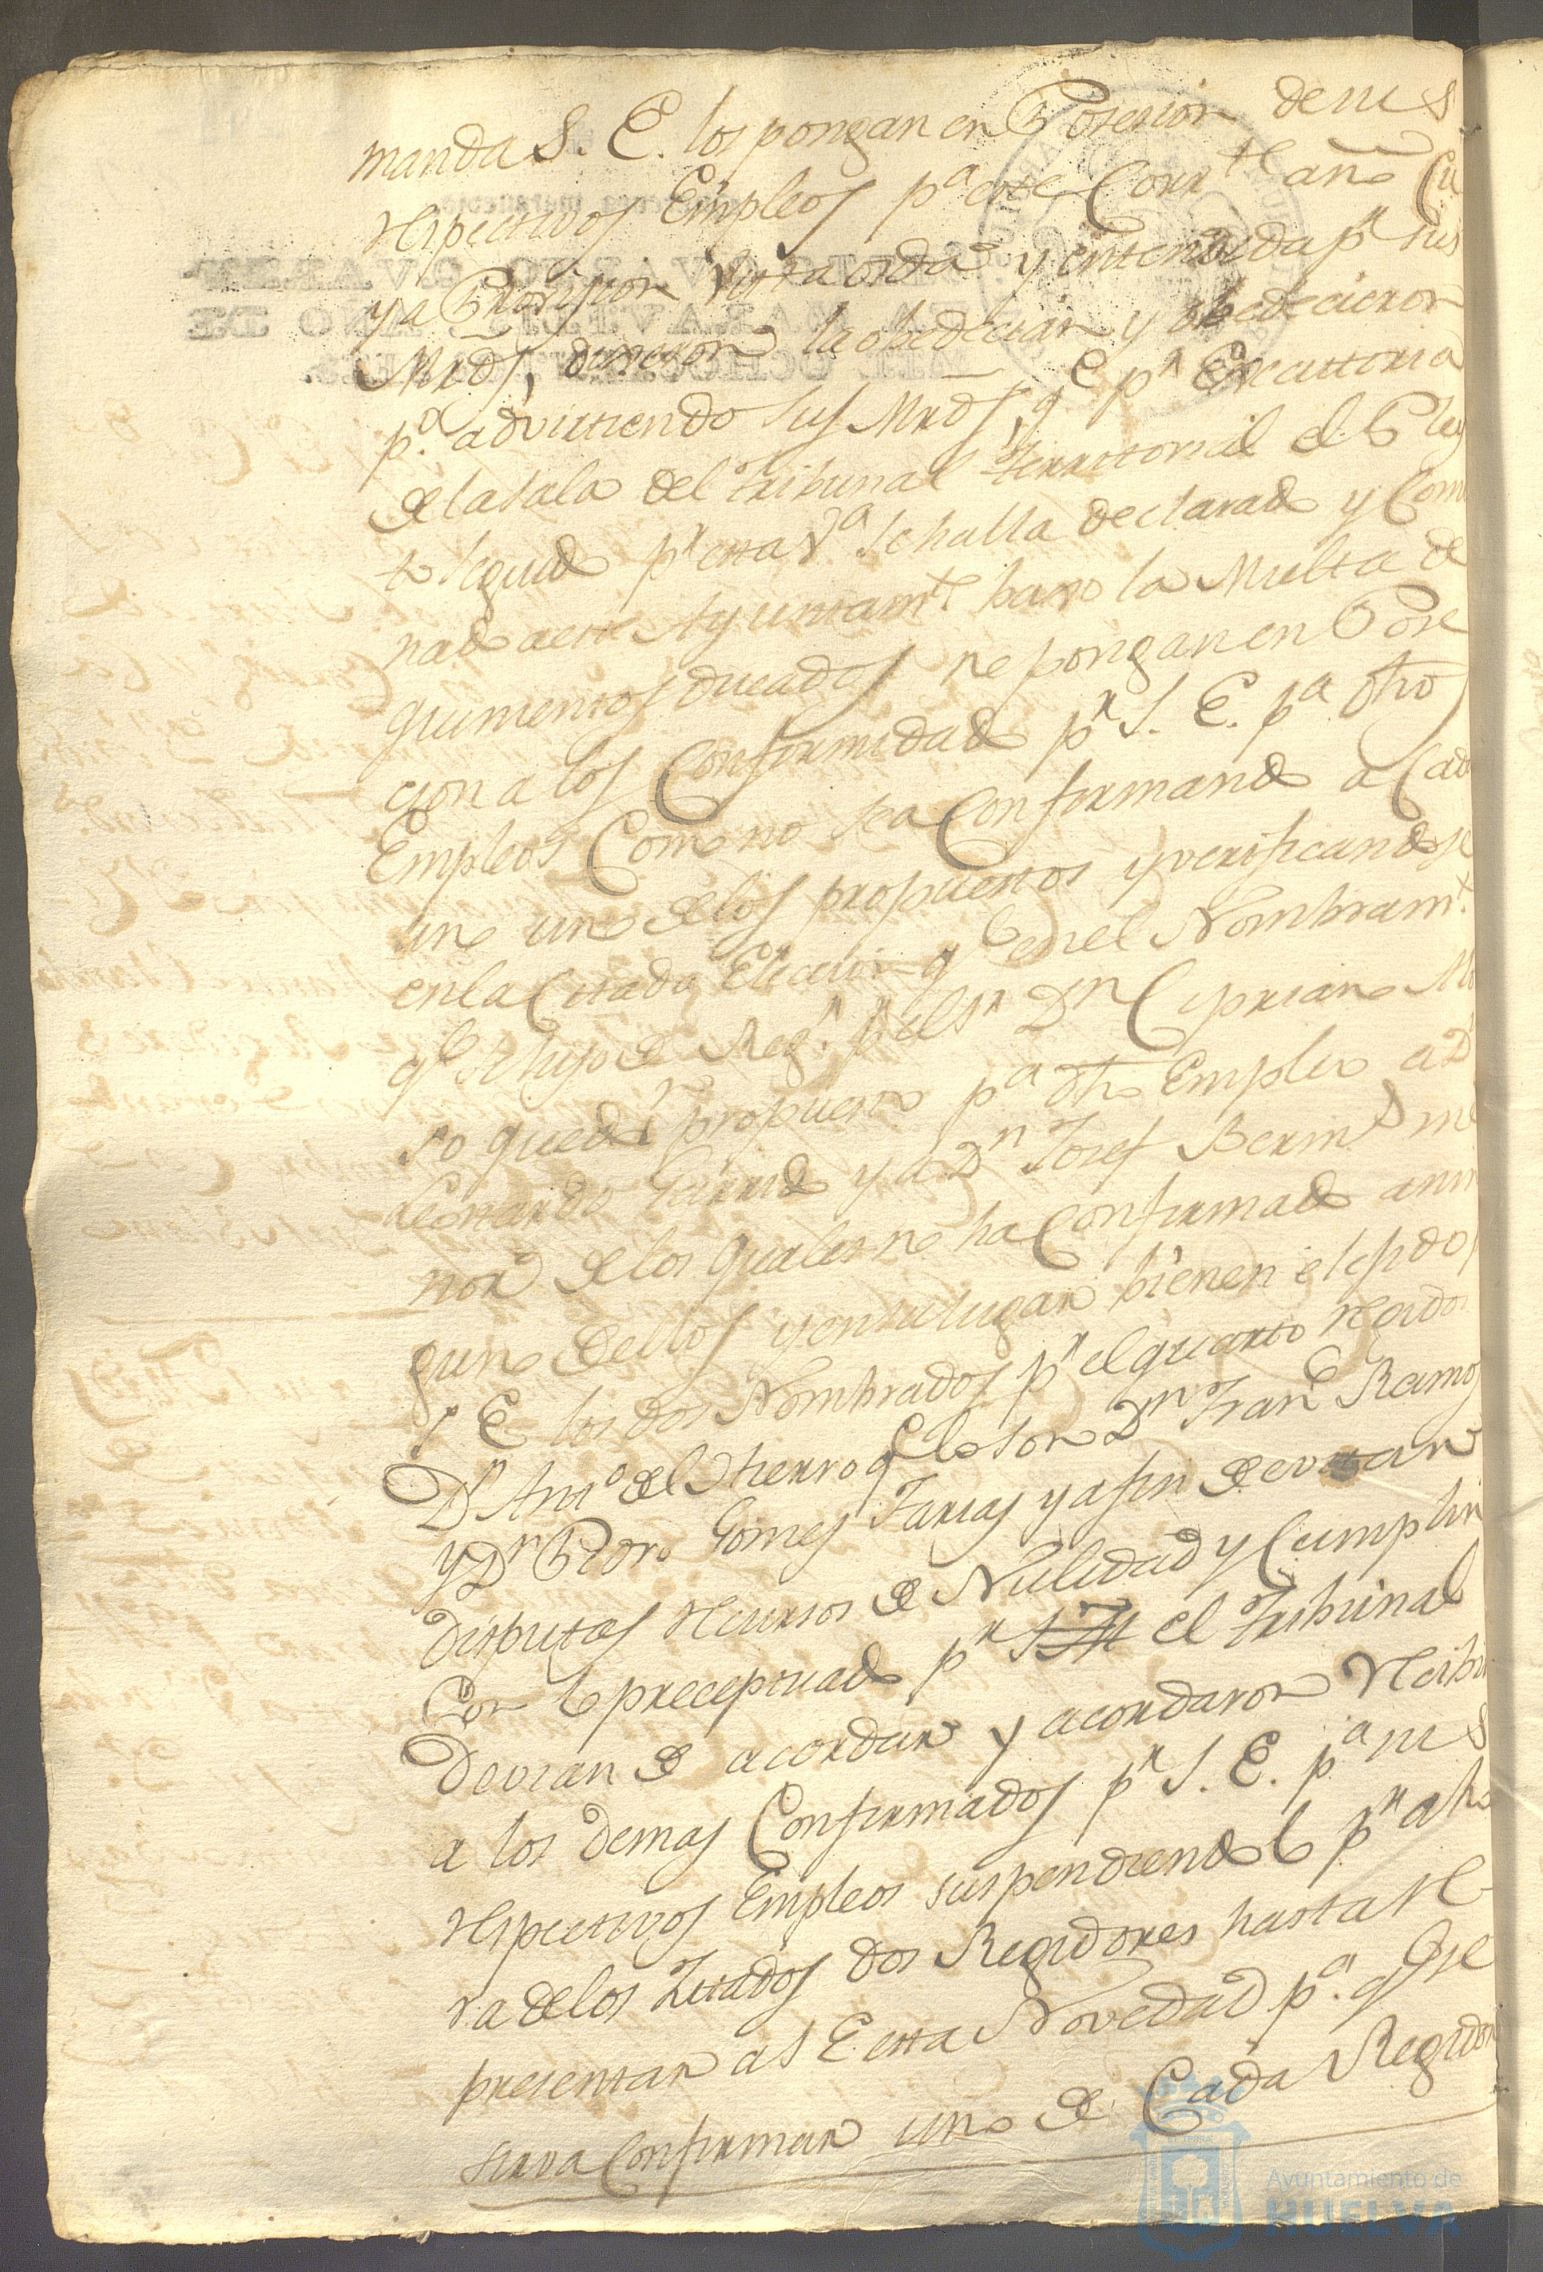 manda S. E. los pongan en Posesion de sus
respectivos Empleos pa este Corrte año Cu
ya Provision vista oida y entendida pr sus
Mrds, dixeron la obedecian y obedecieron
pa. advirtiendo sus Mrds, qe pr Executoria
de la Sala del Tribunal territorial el Pley
to seguido pr esta Va se halla declarado y Com
nado a este Ayuntamto baxo la Multa de
quinientos ducados no pongan en Pose
cion a los Confirmados pr S. E. pa dhos
Empleos Como no sea Confirmando a Cada
uno uno de los propuestos y verificandose
en la Citada Eleccion qe en el Nombramto.
qe se hiso de Regr. pr el Sr Dn Cipriano
so quedó propuesto pa dho Empleo a Dn
Leonardo Garrido y a Dn Josef Bermd me
nor de los quales no ha Confirmado anin
guno dellos y en su lugar bienen elejidos
pr S E los dos Nombrados pr el quarto regidor
Dn Anto del Hierro qe lo son Dn Franco Ramos
y Dn Pedro Gomes Farias y a fin de evitar
disputas recursos de Nulidad y Cumplir
Con lo preceptuado pr el Tribunal
Devian de acordar y acordaron recibir
a los demas Confirmados pr S. E. pa sus
respectivos Empleos suspendiendolo pr aho
ra de los Zitados dos Regidores hasta re
presentar a S E esta Novedad pa. qe se
sirva Confirmar uno de Cada Regidor
Ayuntamiento de
HUELVA